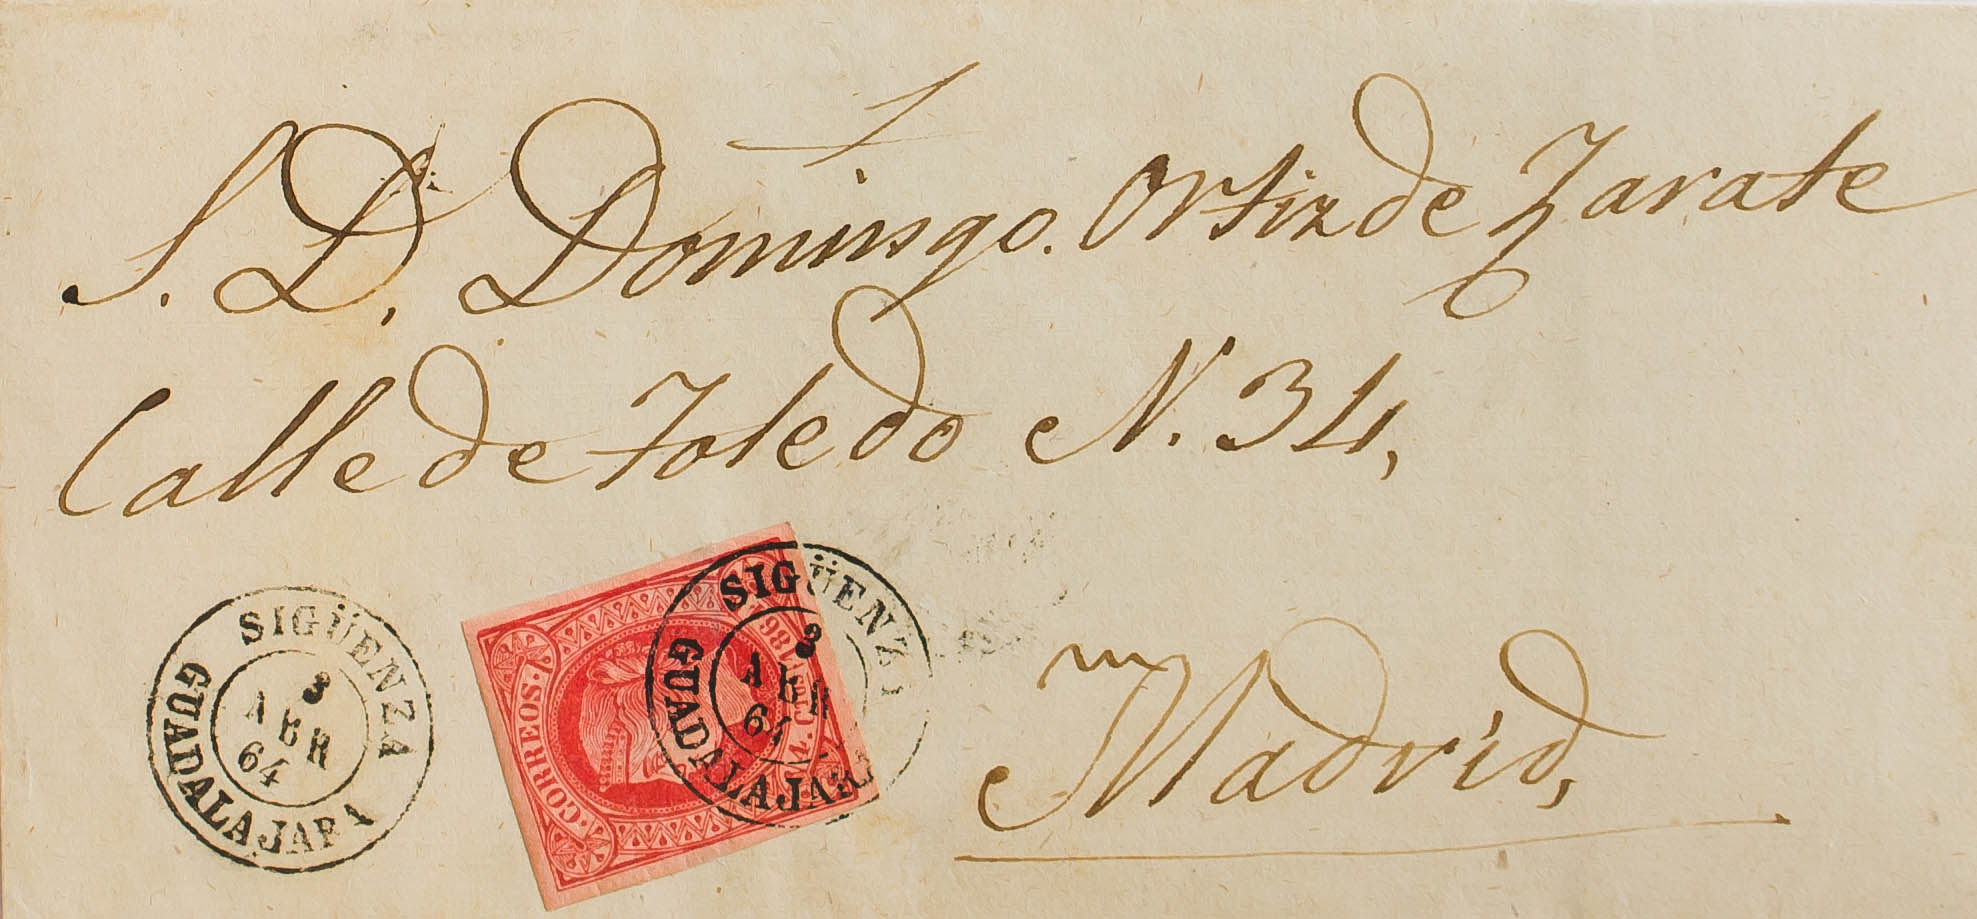 S. D., Domingo. Ortiz de Zarate
Calle de Toledo N. 34,
Madrid,
SIGÜENZA
3
ABR
64
GUADALAJARA
CORREOS.
4. CUOS 186
SIGÜENZA
3
ABR
64
GUADALAJARA